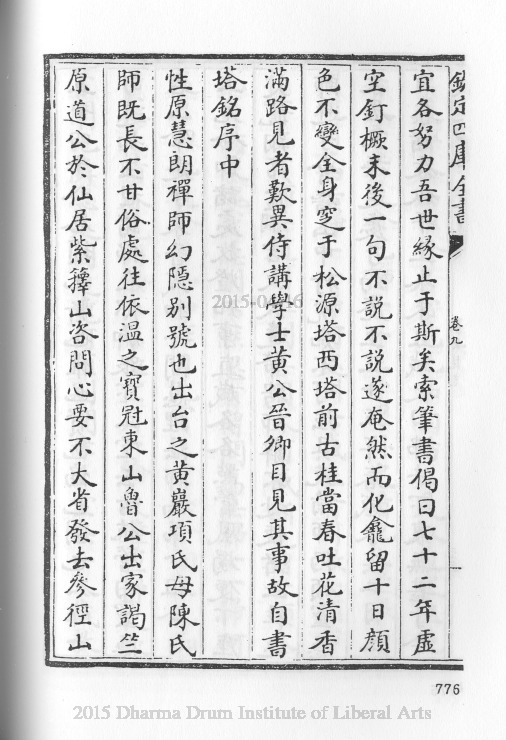 欽定四庫全書
卷九
宜各努力吾世緣止于斯矣索筆書偈曰七十二年虛
空釘橛末後一句不說不說遂奄然而化龕留十日顔
色不變全身窆于松源塔西塔前古桂當春吐花清香
滿路見者歎異侍講學士黄公晉卿目見其事故自書
塔銘序中
性原慧朗禪師幻隱别號也出台之黄巖項氏母陳氏
師既長不甘俗處往依温之寶冠東山魯公出家謁竺
原道公於仙居紫籜山咨問心要不大省發去參徑山
776
2015 Dharma Drum Institute of Liberal Arts